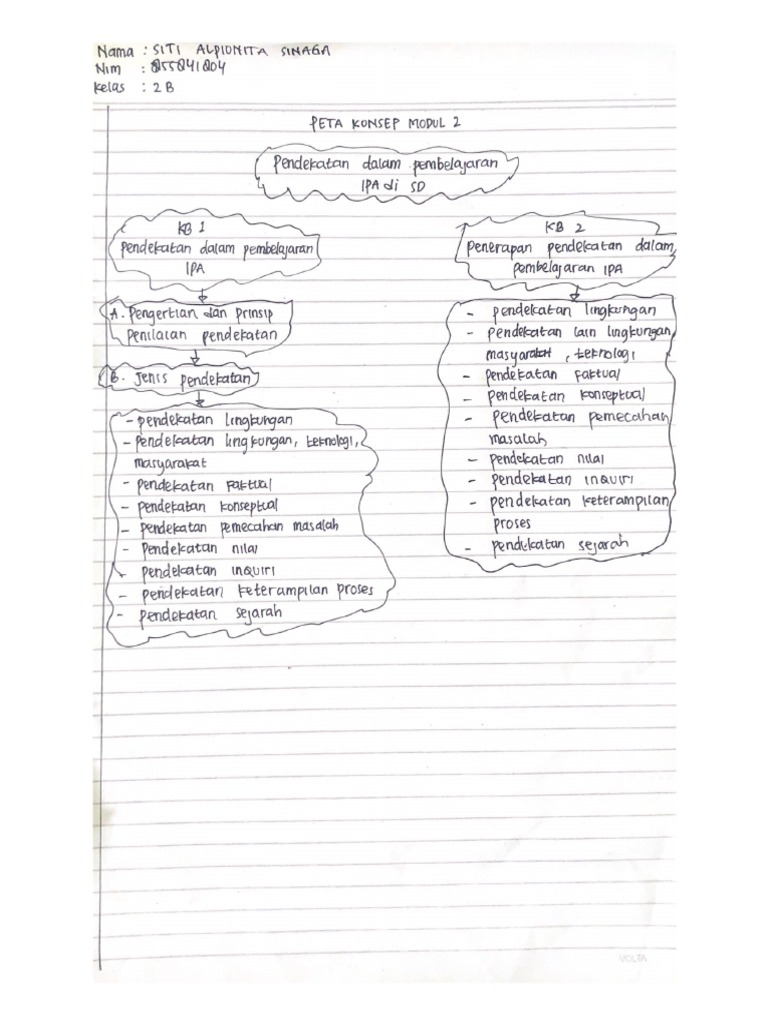 Nama : SITI ALPIONITA SINAGA
Nim : 855841804
Kelas : 2 B
PETA KONSEP MODUL 2
Pendekatan dalam pembelajaran
IPA di SD
KB 1
Pendekatan dalam pembelajaran
IPA
A. Pengertian dan prinsip
Penilaian pendekatan
B. Jenis pendekatan
- pendekatan lingkungan
- Pendekatan lingkungan, teknologi,
masyarakat
- pendekatan faktual
- pendekatan konseptual
- pendekatan pemecahan masalah
- pendekatan nilai
- pendekatan inquiri
- pendekatan keterampilan proses
- pendekatan sejarah
KB 2
Penerapan pendekatan dalam
pembelajaran IPA
- pendekatan lingkungan
- pendekatan lain lingkungan,
masyarakat, teknologi
- pendekatan faktual
- pendekatan konseptual
- pendekatan pemecahan
masalah
- pendekatan nilai
- pendekatan inquiri
- pendekatan keterampilan
proses
- pendekatan sejarah
VOLTA